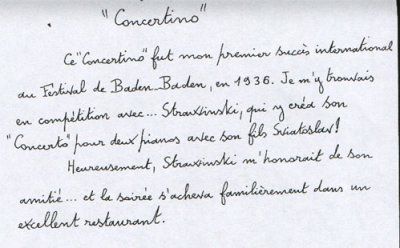 "Concertino"
Ce "Concertino" fut mon premier succès international
au Féstival de Baden-Baden, en 1936. Je m'y trouvais
en compétition avec... Strawinski, qui y créa son
"Concerto" pour deux pianos avec son fils Sviatoslav!
Heureusement, Strawinski m'honorait de son
amitié... et la soirée s'acheva familièrement dans un
excellent restaurant.